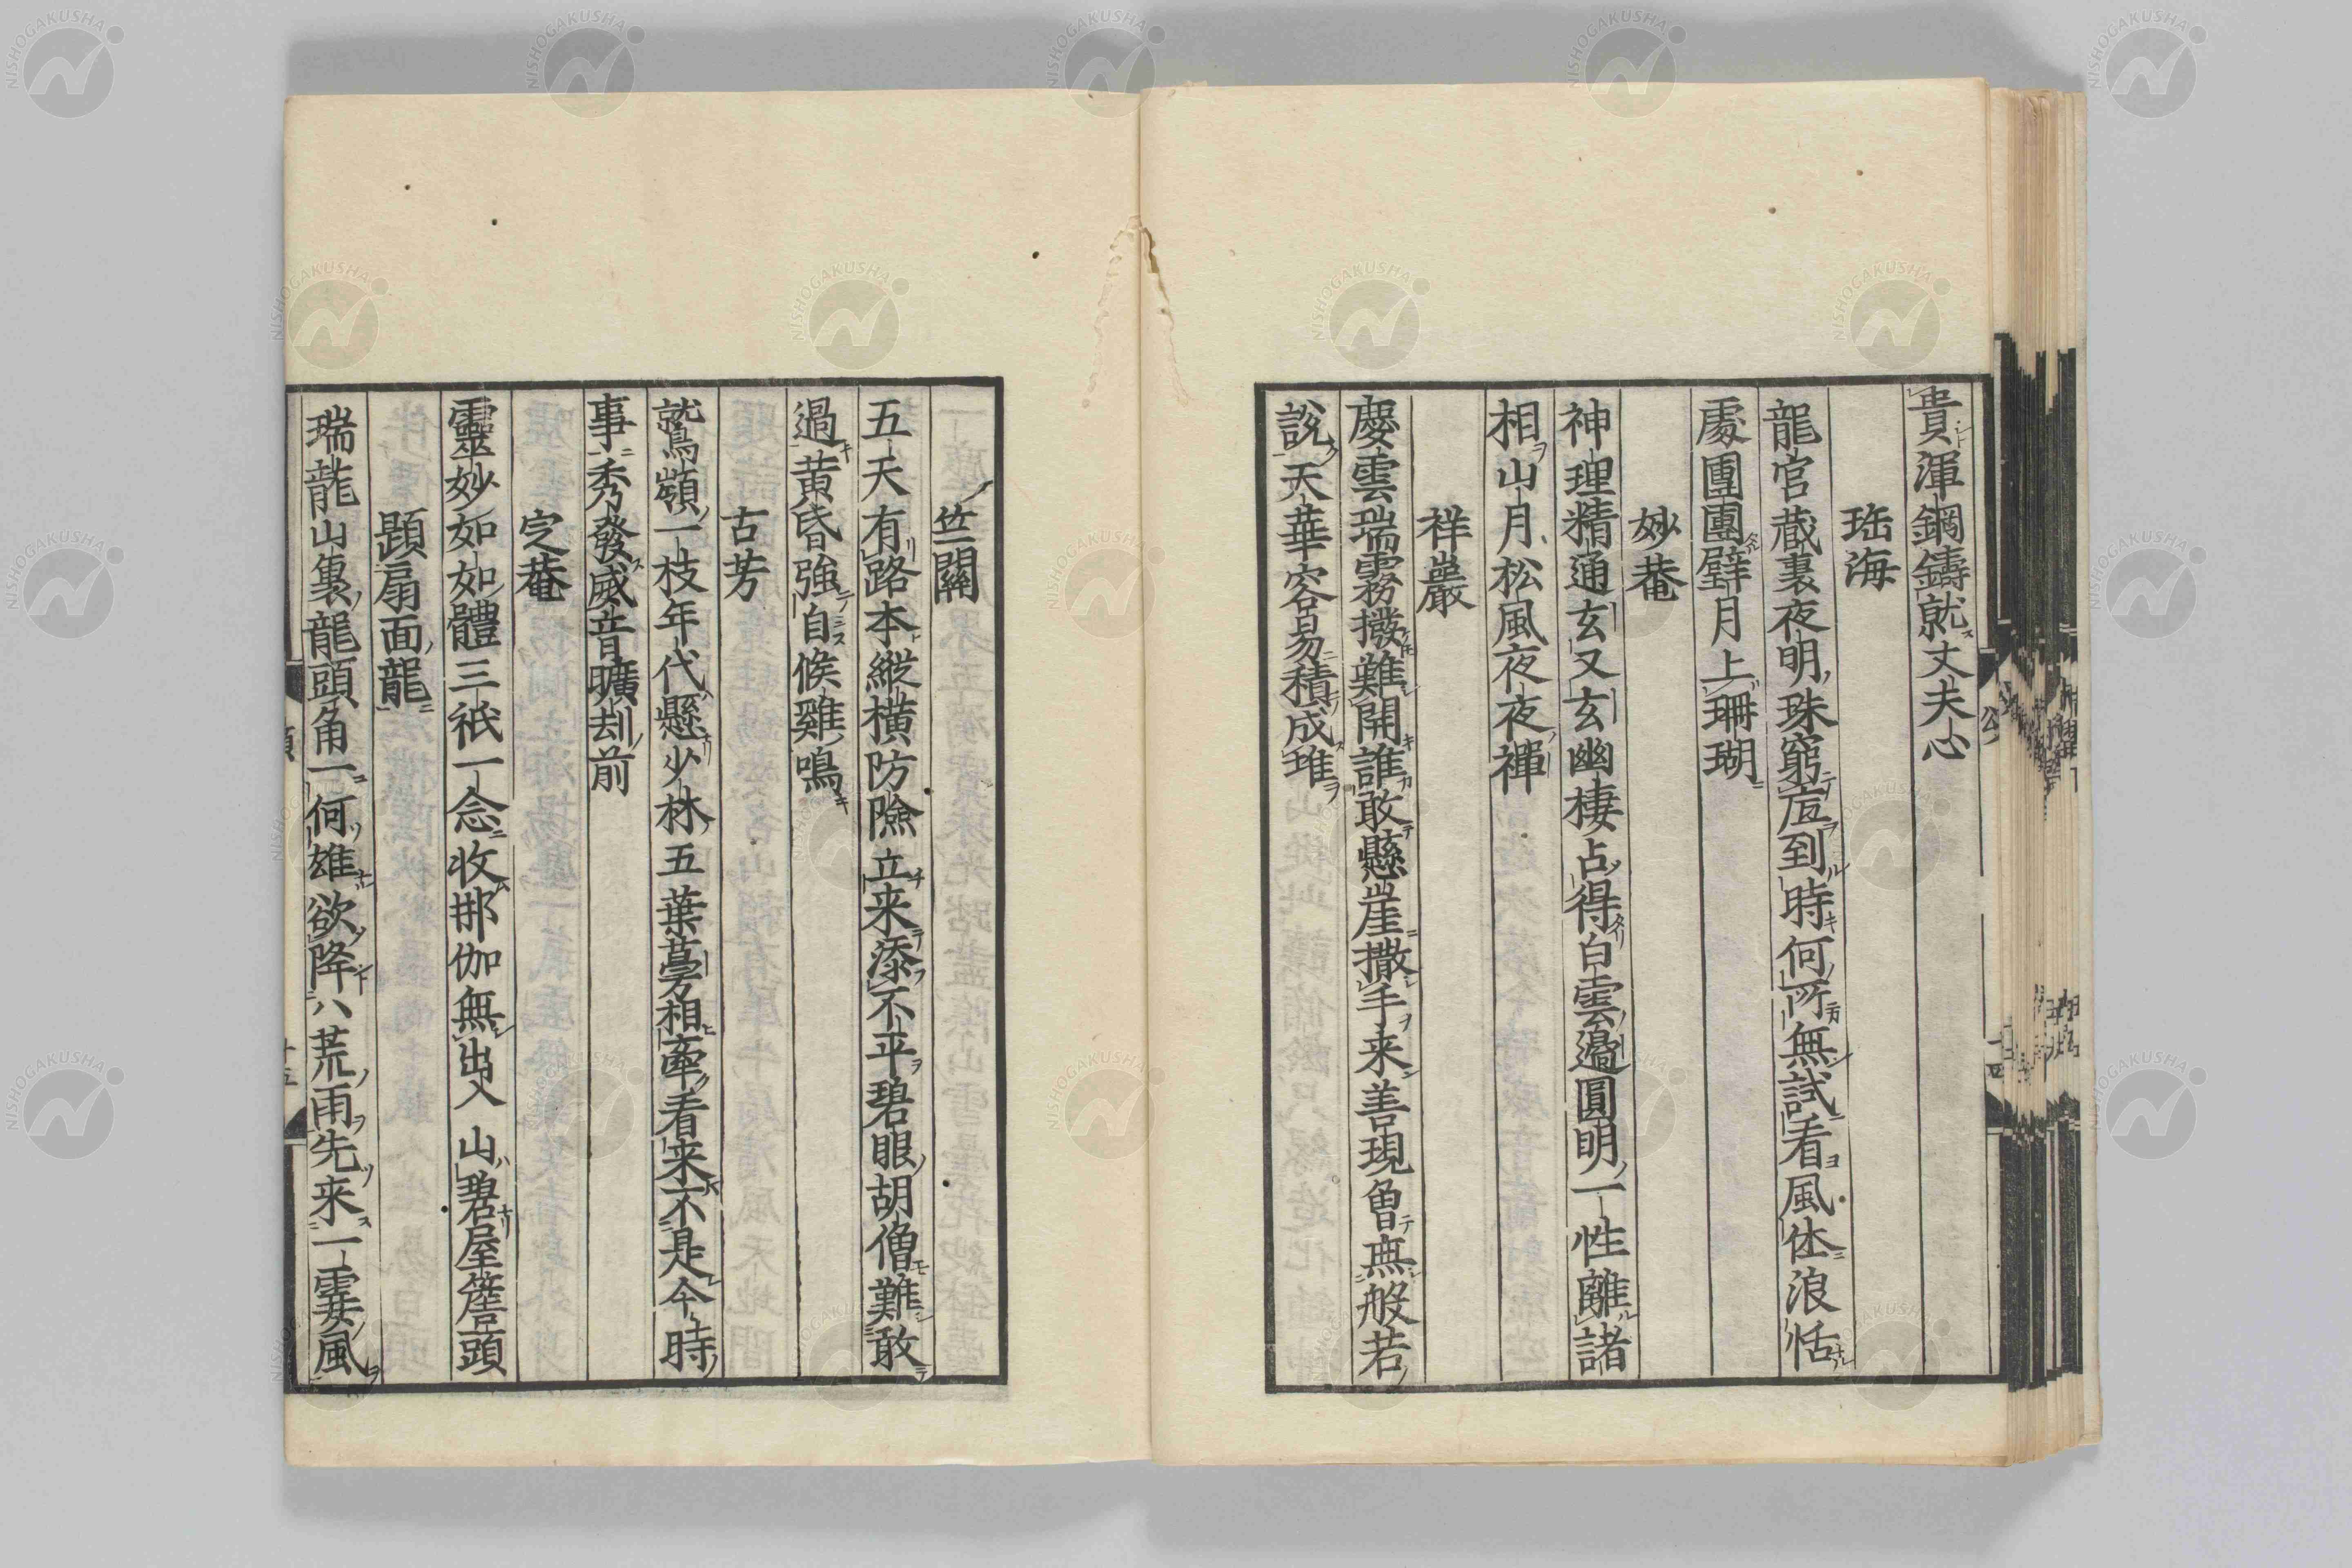 貴渾鋼鑄就丈夫心
珤海
龍宮蔵裏夜明珠窮㡳到時何所無試看風休浪恬
處團團璧月上珊瑚
妙菴
神理精通玄又玄幽棲占得白雲邊圓明一性離諸
相山月松風夜夜禪
祥巖
慶雲瑞霧撥難開誰敢懸崖撒手来善現曾無般若
說天華容易積成堆
竺關
五天有路本縱横防險立来添不平碧眼胡僧難敢
過黄昏強自候雞鳴
古芳
鷲嶺一枝年代懸少林五葉蔓相牽看来不是今時
事秀發威音曠刦前
定菴
靈妙如如體三祇一念收那伽無出入山碧屋簷頭
題扇面龍
瑞龍山裏龍頭角一何雄欲降八荒雨先来一霎風